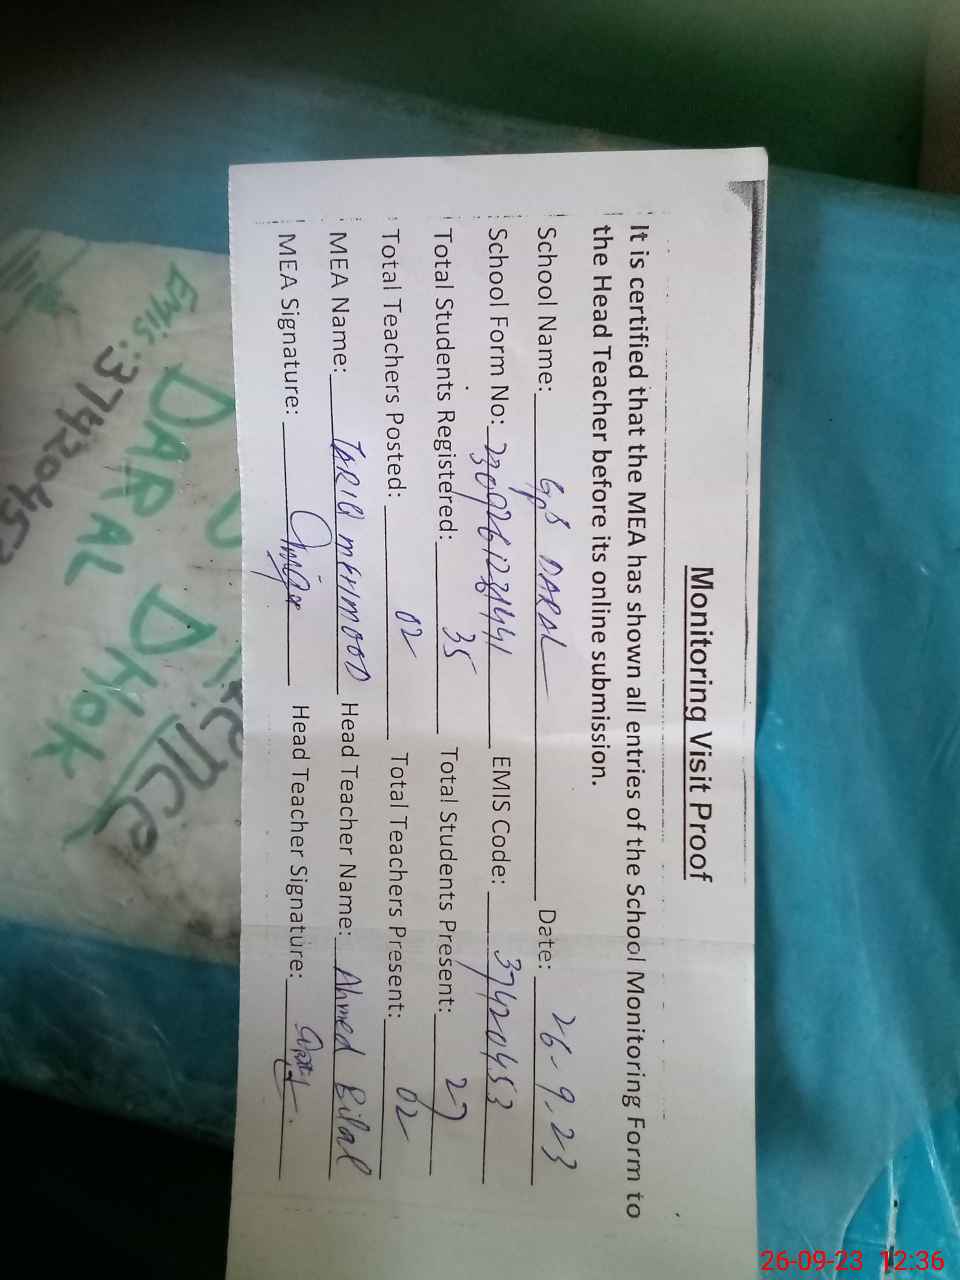 Monitoring Visit Proof
It is certified that the MEA has shown all entries of the School Monitoring Form to
the Head Teacher before its online submission.
School Name: GPS DARAL Date: 26-9-23
School Form No: EMIS Code: 37420453
Total Students Registered: 35 Total Students Present: 27
Total Teachers Posted: 02 Total Teachers Present: 02
MEA Name: TARIQ MEHMOOD Head Teacher Name: Ahmed Bilal
MEA Signature: Head Teacher Signature:
EMIS: 37420453
DARAL DHOK
26-09-23 12:36